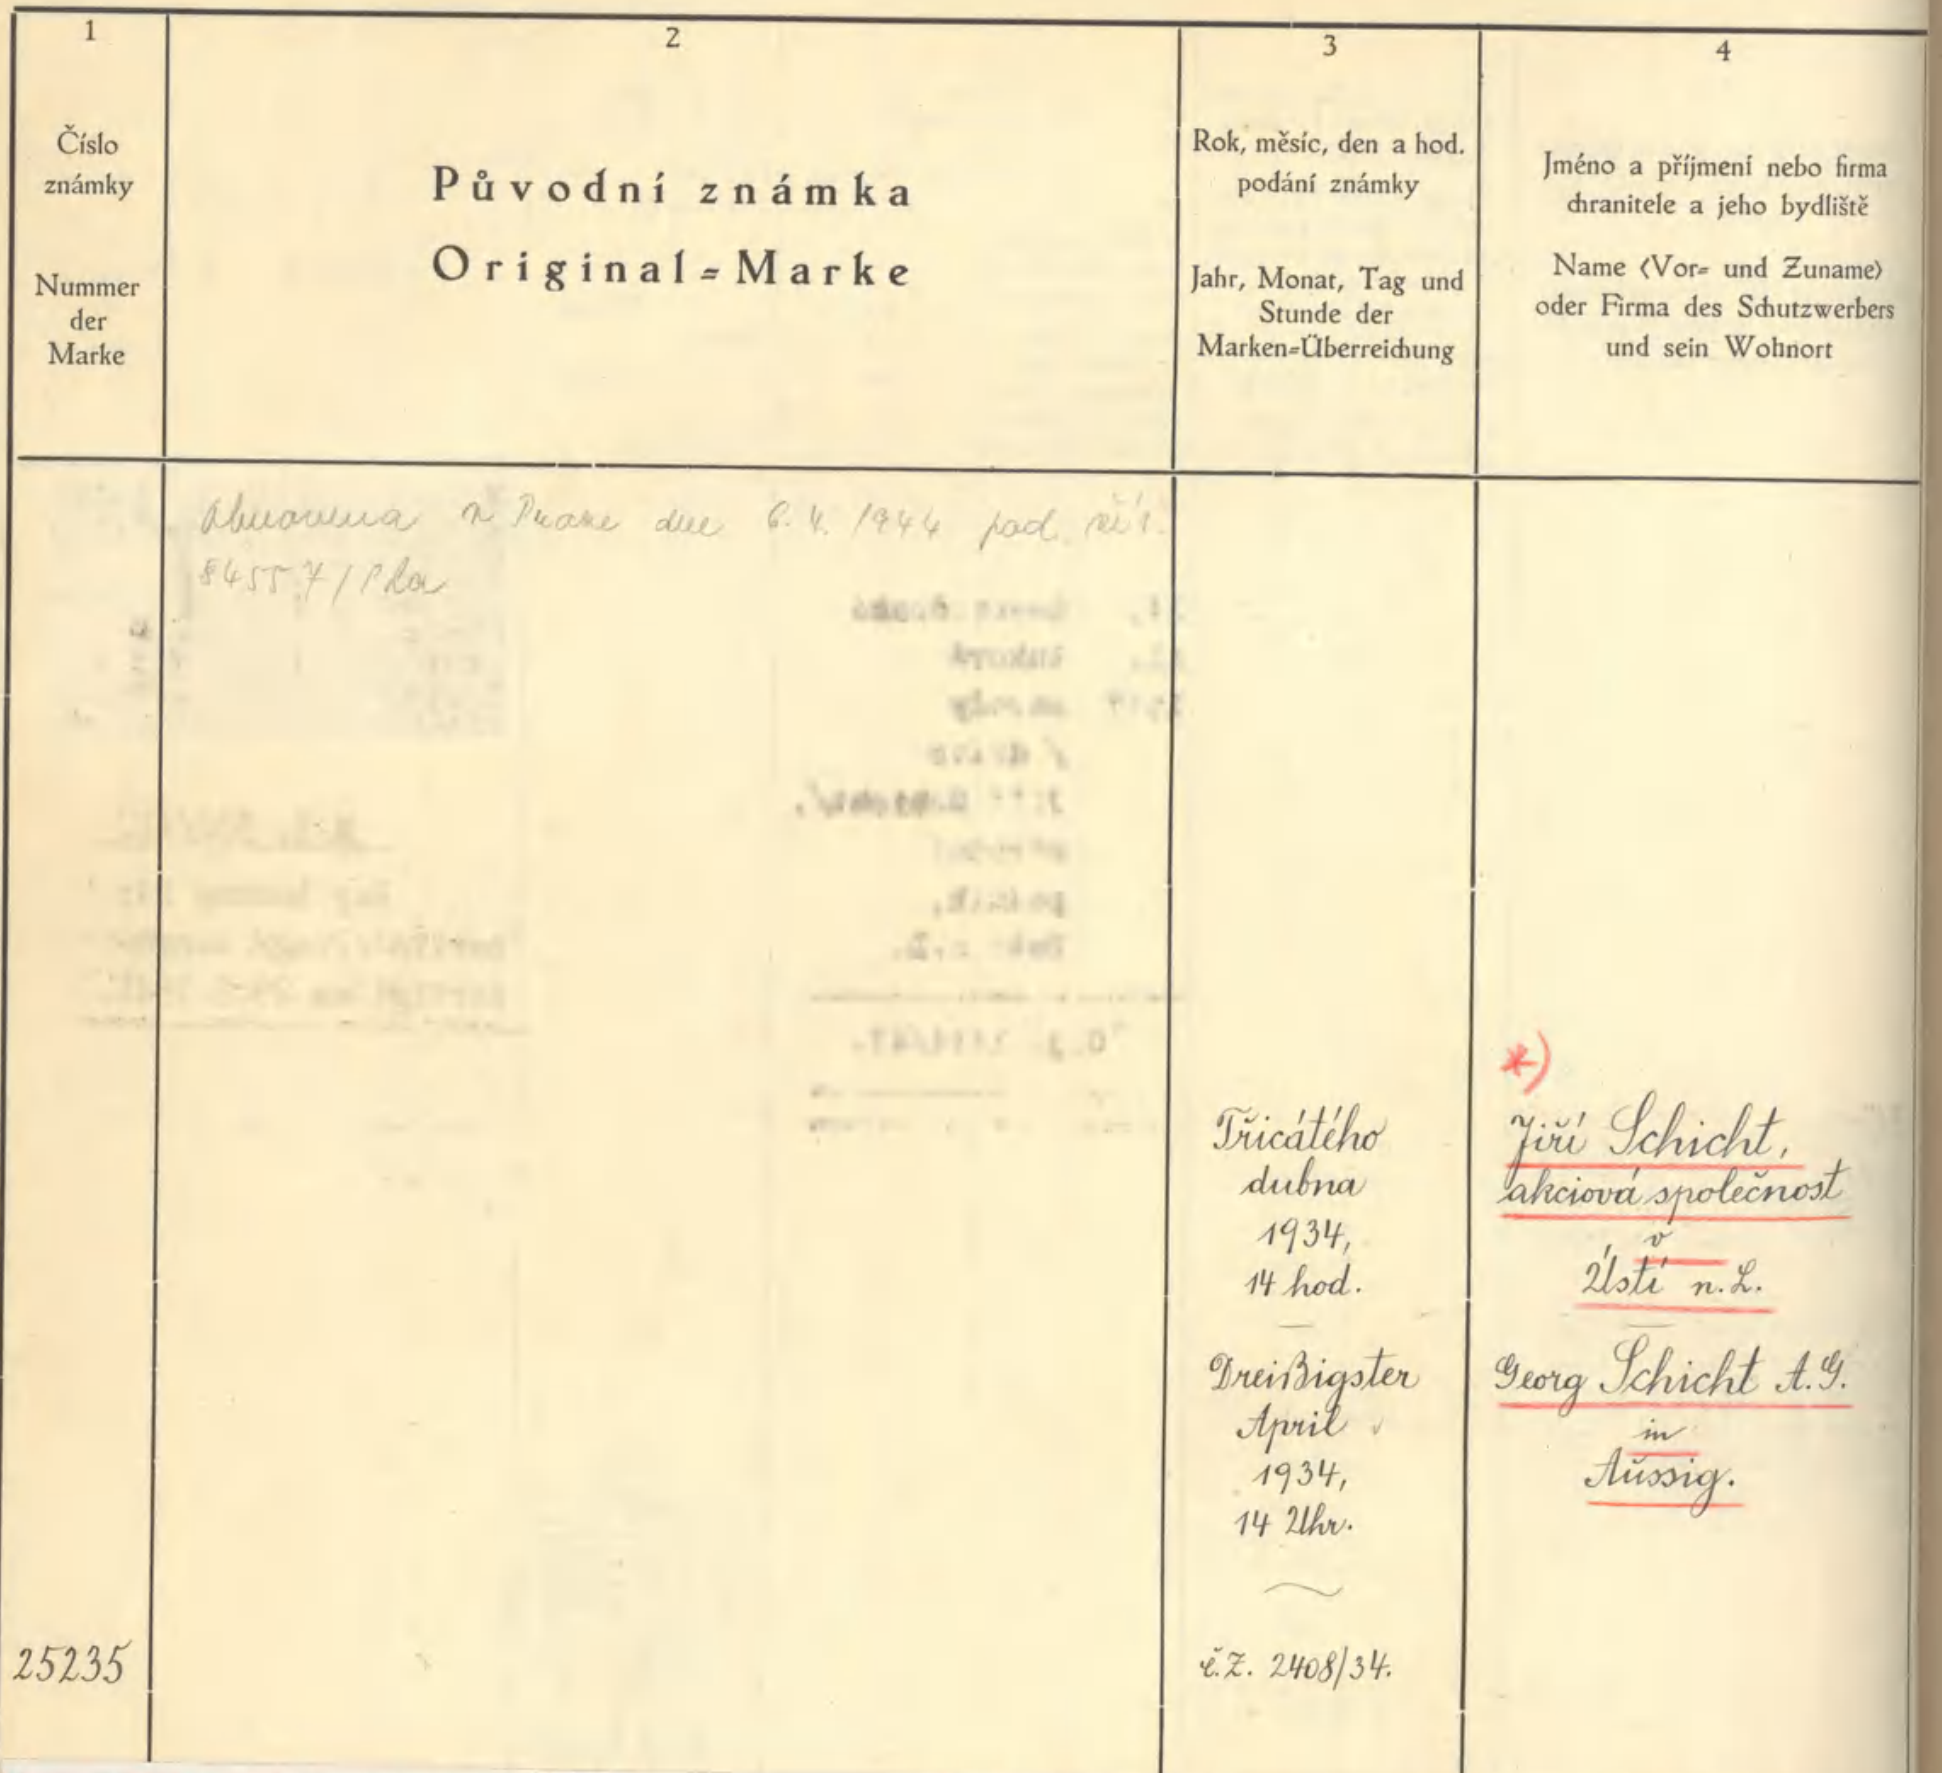 1
Číslo
známky
Nummer
der
Marke
2
Původní známka
Original=Marke
3
Rok, měsíc, den a hod.
podání známky
Jahr, Monat, Tag und
Stunde der
Marken=Überreichung
4
Jméno a příjmení nebo firma
chranitele a jeho bydliště
Name (Vor= und Zuname)
oder Firma des Schutzwerbers
und sein Wohnort
Obnovena v Praze dne 6. 4. 1944 pod
25235
Třicátého
dubna
1934,
14 hod.
Dreißigster
April
1934,
14 Uhr.
č.Z. 2408/34.
*)
Jiří Schicht,
akciová společnost
v
Ústí n. L.
Georg Schicht A.G.
in
Aussig.